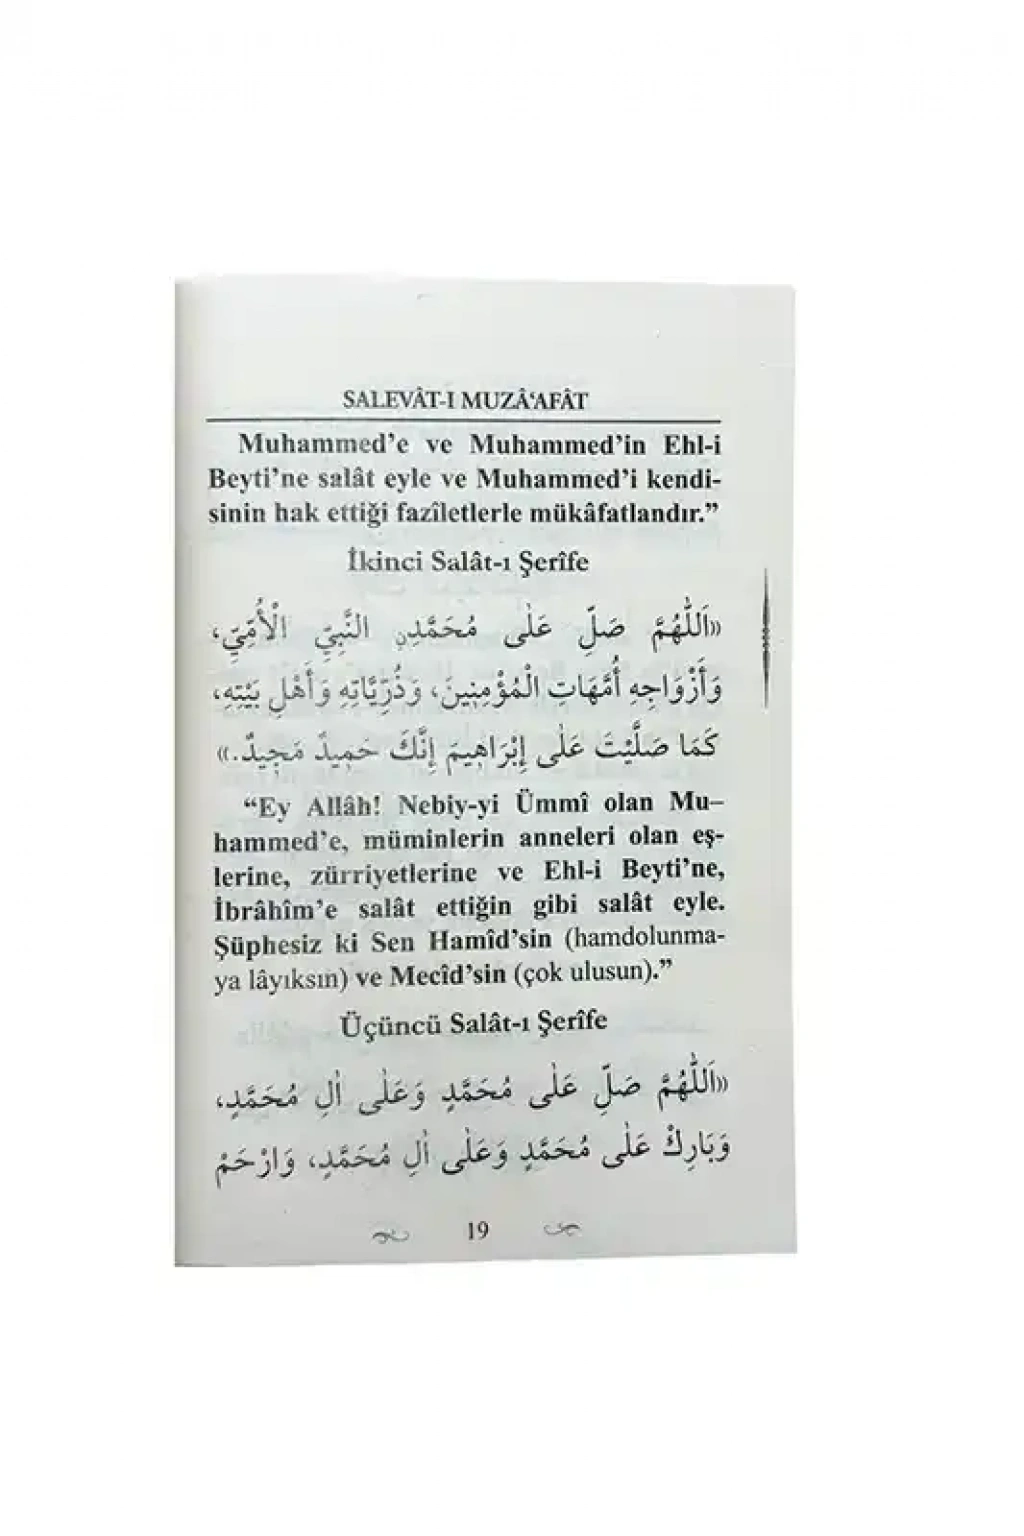 SALEVÂT-I MUZÂ‘AFÂT
Muhammed’e ve Muhammed’in Ehl-i
Beyti’ne salât eyle ve Muhammed’i kendi-
sinin hak ettiği fazîletlerle mükâfatlandır.”
İkinci Salât-ı Şerîfe
«اَللّٰهُمَّ صَلِّ عَلٰى مُحَمَّدٍنِ النَّبِيِّ الْأُمِّيِّ،
وَأَزْوَاجِهِ أُمَّهَاتِ الْمُؤْمِنِينَ، وَذُرِّيَّاتِهِ وَأَهْلِ بَيْتِهِ،
كَمَا صَلَّيْتَ عَلٰى إِبْرَاهِيمَ إِنَّكَ حَمِيدٌ مَجِيدٌ.»
“Ey Allâh! Nebiy-yi Ümmî olan Mu–
hammed’e, müminlerin anneleri olan eş-
lerine, zürriyetlerine ve Ehl-i Beyti’ne,
İbrâhîm’e salât ettiğin gibi salât eyle.
Şüphesiz ki Sen Hamîd’sin (hamdolunma-
ya lâyıksın) ve Mecîd’sin (çok ulusun).”
Üçüncü Salât-ı Şerîfe
«اَللّٰهُمَّ صَلِّ عَلٰى مُحَمَّدٍ وَعَلٰى اٰلِ مُحَمَّدٍ،
وَبَارِكْ عَلٰى مُحَمَّدٍ وَعَلٰى اٰلِ مُحَمَّدٍ، وَارْحَمْ
19